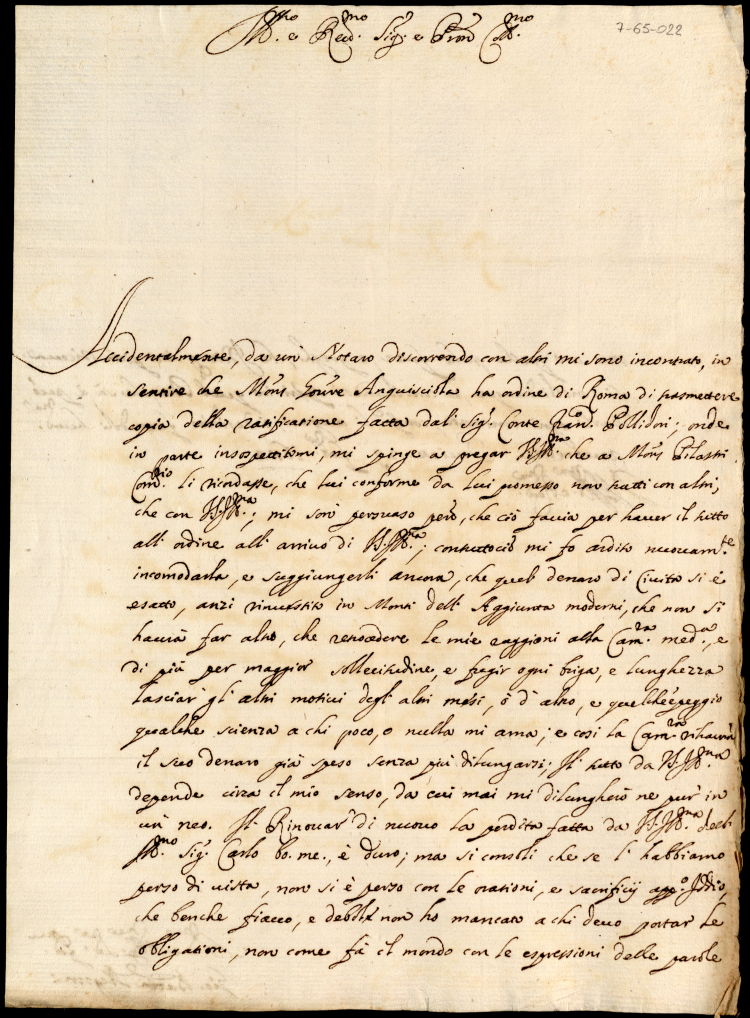 Ill.mo e Rev.mo Sig.r e Pron Col.mo
7-65-022
Accidentalmente, da un Notaro discorrendo con altri mi sono incontrato, in
sentire che Mons.r Gov.re Anguisciola ha ordine di Roma di trasmettere
copia della ratificatione fatta dal Sig.r Conte Fran.co Pollidori; onde
in parte insospettitomi, mi spinge a pregar V.S.Ill.ma che a Mons.r Pilastri
Com.rio li ricordasse, che lui conforme da lui promesso non tratti con altri,
che con V.S.Ill.ma; mi son persuaso però, che ciò faccia per haver il tutto
all'ordine all'arrivo di V.S.Ill.ma; contuttociò mi fo ardito nuovam.te
incomodarla, e suggiungerli ancora, che quel denaro di Civita si è
esatto, anzi rinvestito in Monti dell'Aggiunta moderni, che non si
haverà far altro, che retrocedere le mie raggioni alla Cam.ra med.a, e
di più per maggior sollecitudine, e fugir ogni briga, e lunghezza
lasciar gl'altri motivi degl'altri mesi, ò d'altro, e quel ch'è peggio
qualche scienza a chi poco, o nulla mi ama; e così la Cam.ra rihaverà
il suo denaro già speso senza più dilungarsi; Il tutto da V.S.Ill.ma
depende circa il mio senso, da cui mai mi dilungherò ne pur in
un neo. Il Rinovar di nuovo la perdita fatta da V.S.Ill.ma dell
Ill.mo Sig.r Carlo bo. me., è duro; ma si consoli che se l'habbiamo
perso di vista, non si è perso con le orationi, e sacrificij app.o Iddio,
che benche fiacco, e debole non ho mancato a chi devo portar le
obligationi, non come fà il mondo con le espressioni delle parole